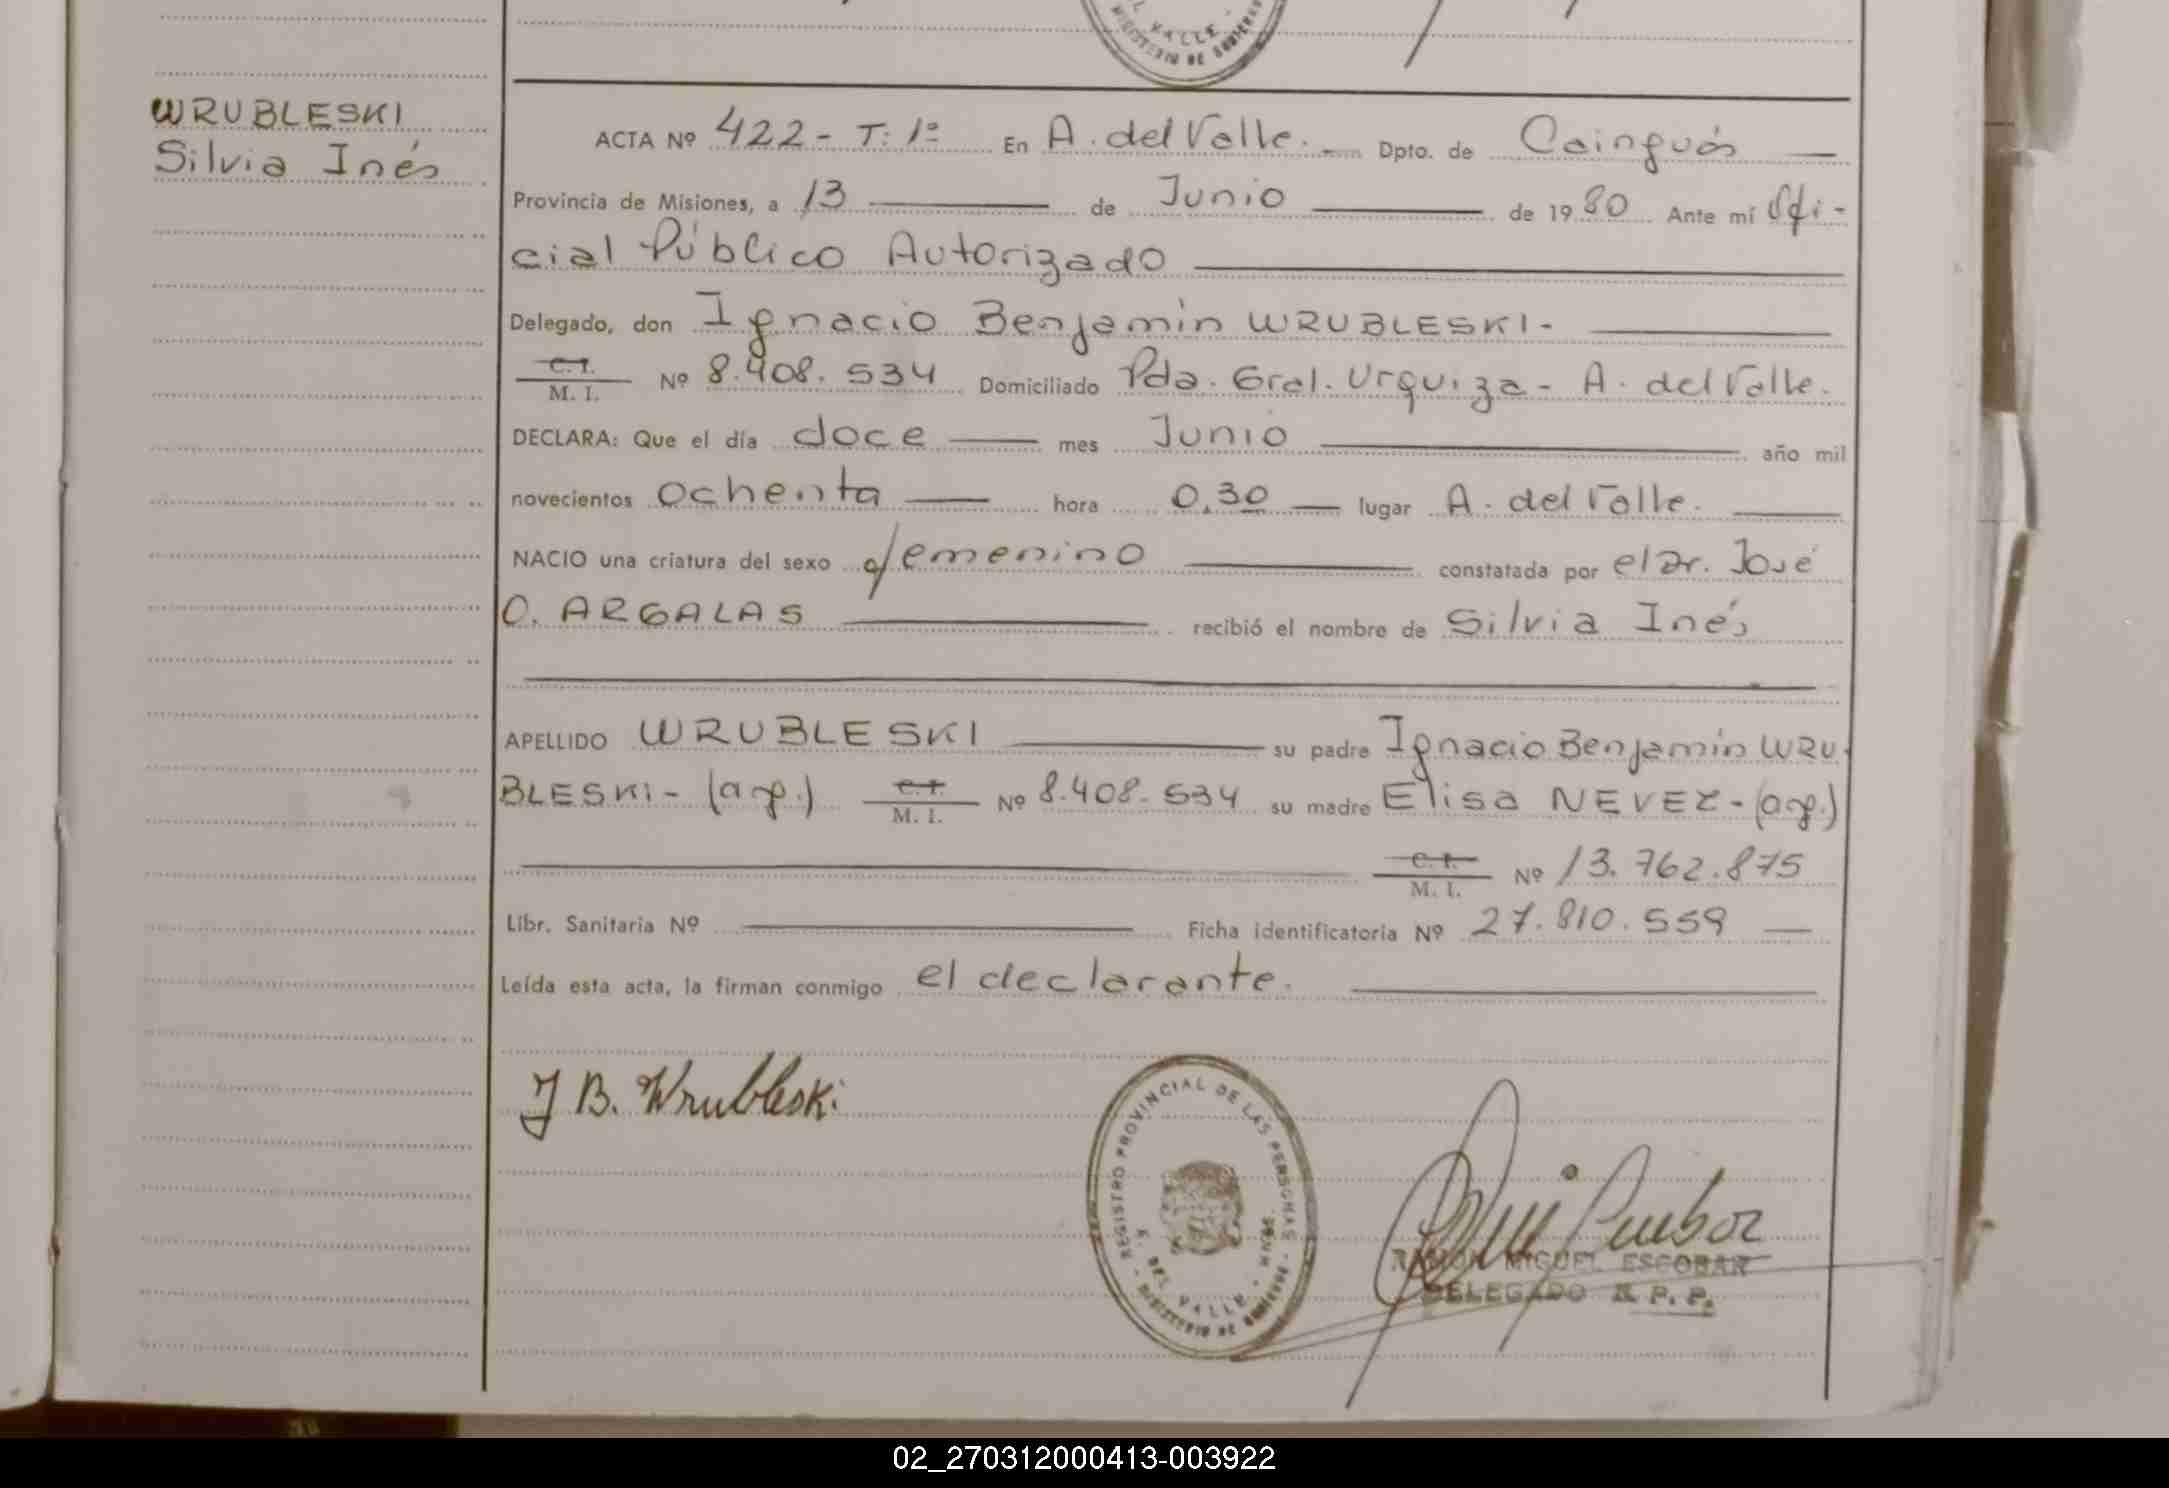 L VALLE
MINISTERIO DE GOBIERNO
WRUBLESKI
Silvia Inés
ACTA Nº 422 - T: 1º En A. del Valle. - Dpto. de Cainguás
Provincia de Misiones, a 13 de Junio de 1980 Ante mí Ofi-
cial Público Autorizado
Delegado, don Ignacio Benjamín WRUBLESKI -
C. I.
M. I. Nº 8.408.534 Domiciliado Pda. Gral. Urquiza - A. del Valle.
DECLARA: Que el día doce mes Junio año mil
novecientos ochenta hora 0,30 lugar A. del Valle.
NACIO una criatura del sexo femenino constatada por el Dr. José
O. ARGALAS recibió el nombre de Silvia Inés
APELLIDO WRUBLESKI su padre Ignacio Benjamín WRU-
BLESKI - (arg.) C. I. M. I. Nº 8.408.534 su madre Elisa NEVEZ - (arg.)
C. I. M. I. Nº 13.762.875
Libr. Sanitaria Nº Ficha identificatoria Nº 27.810.559
Leída esta acta, la firman conmigo el declarante.
J B. Wrubleski
REGISTRO PROVINCIAL DE LAS PERSONAS
DEL VALLE
RAMON MIGUEL ESCOBAR
DELEGADO R. P. P.
02_270312000413-003922